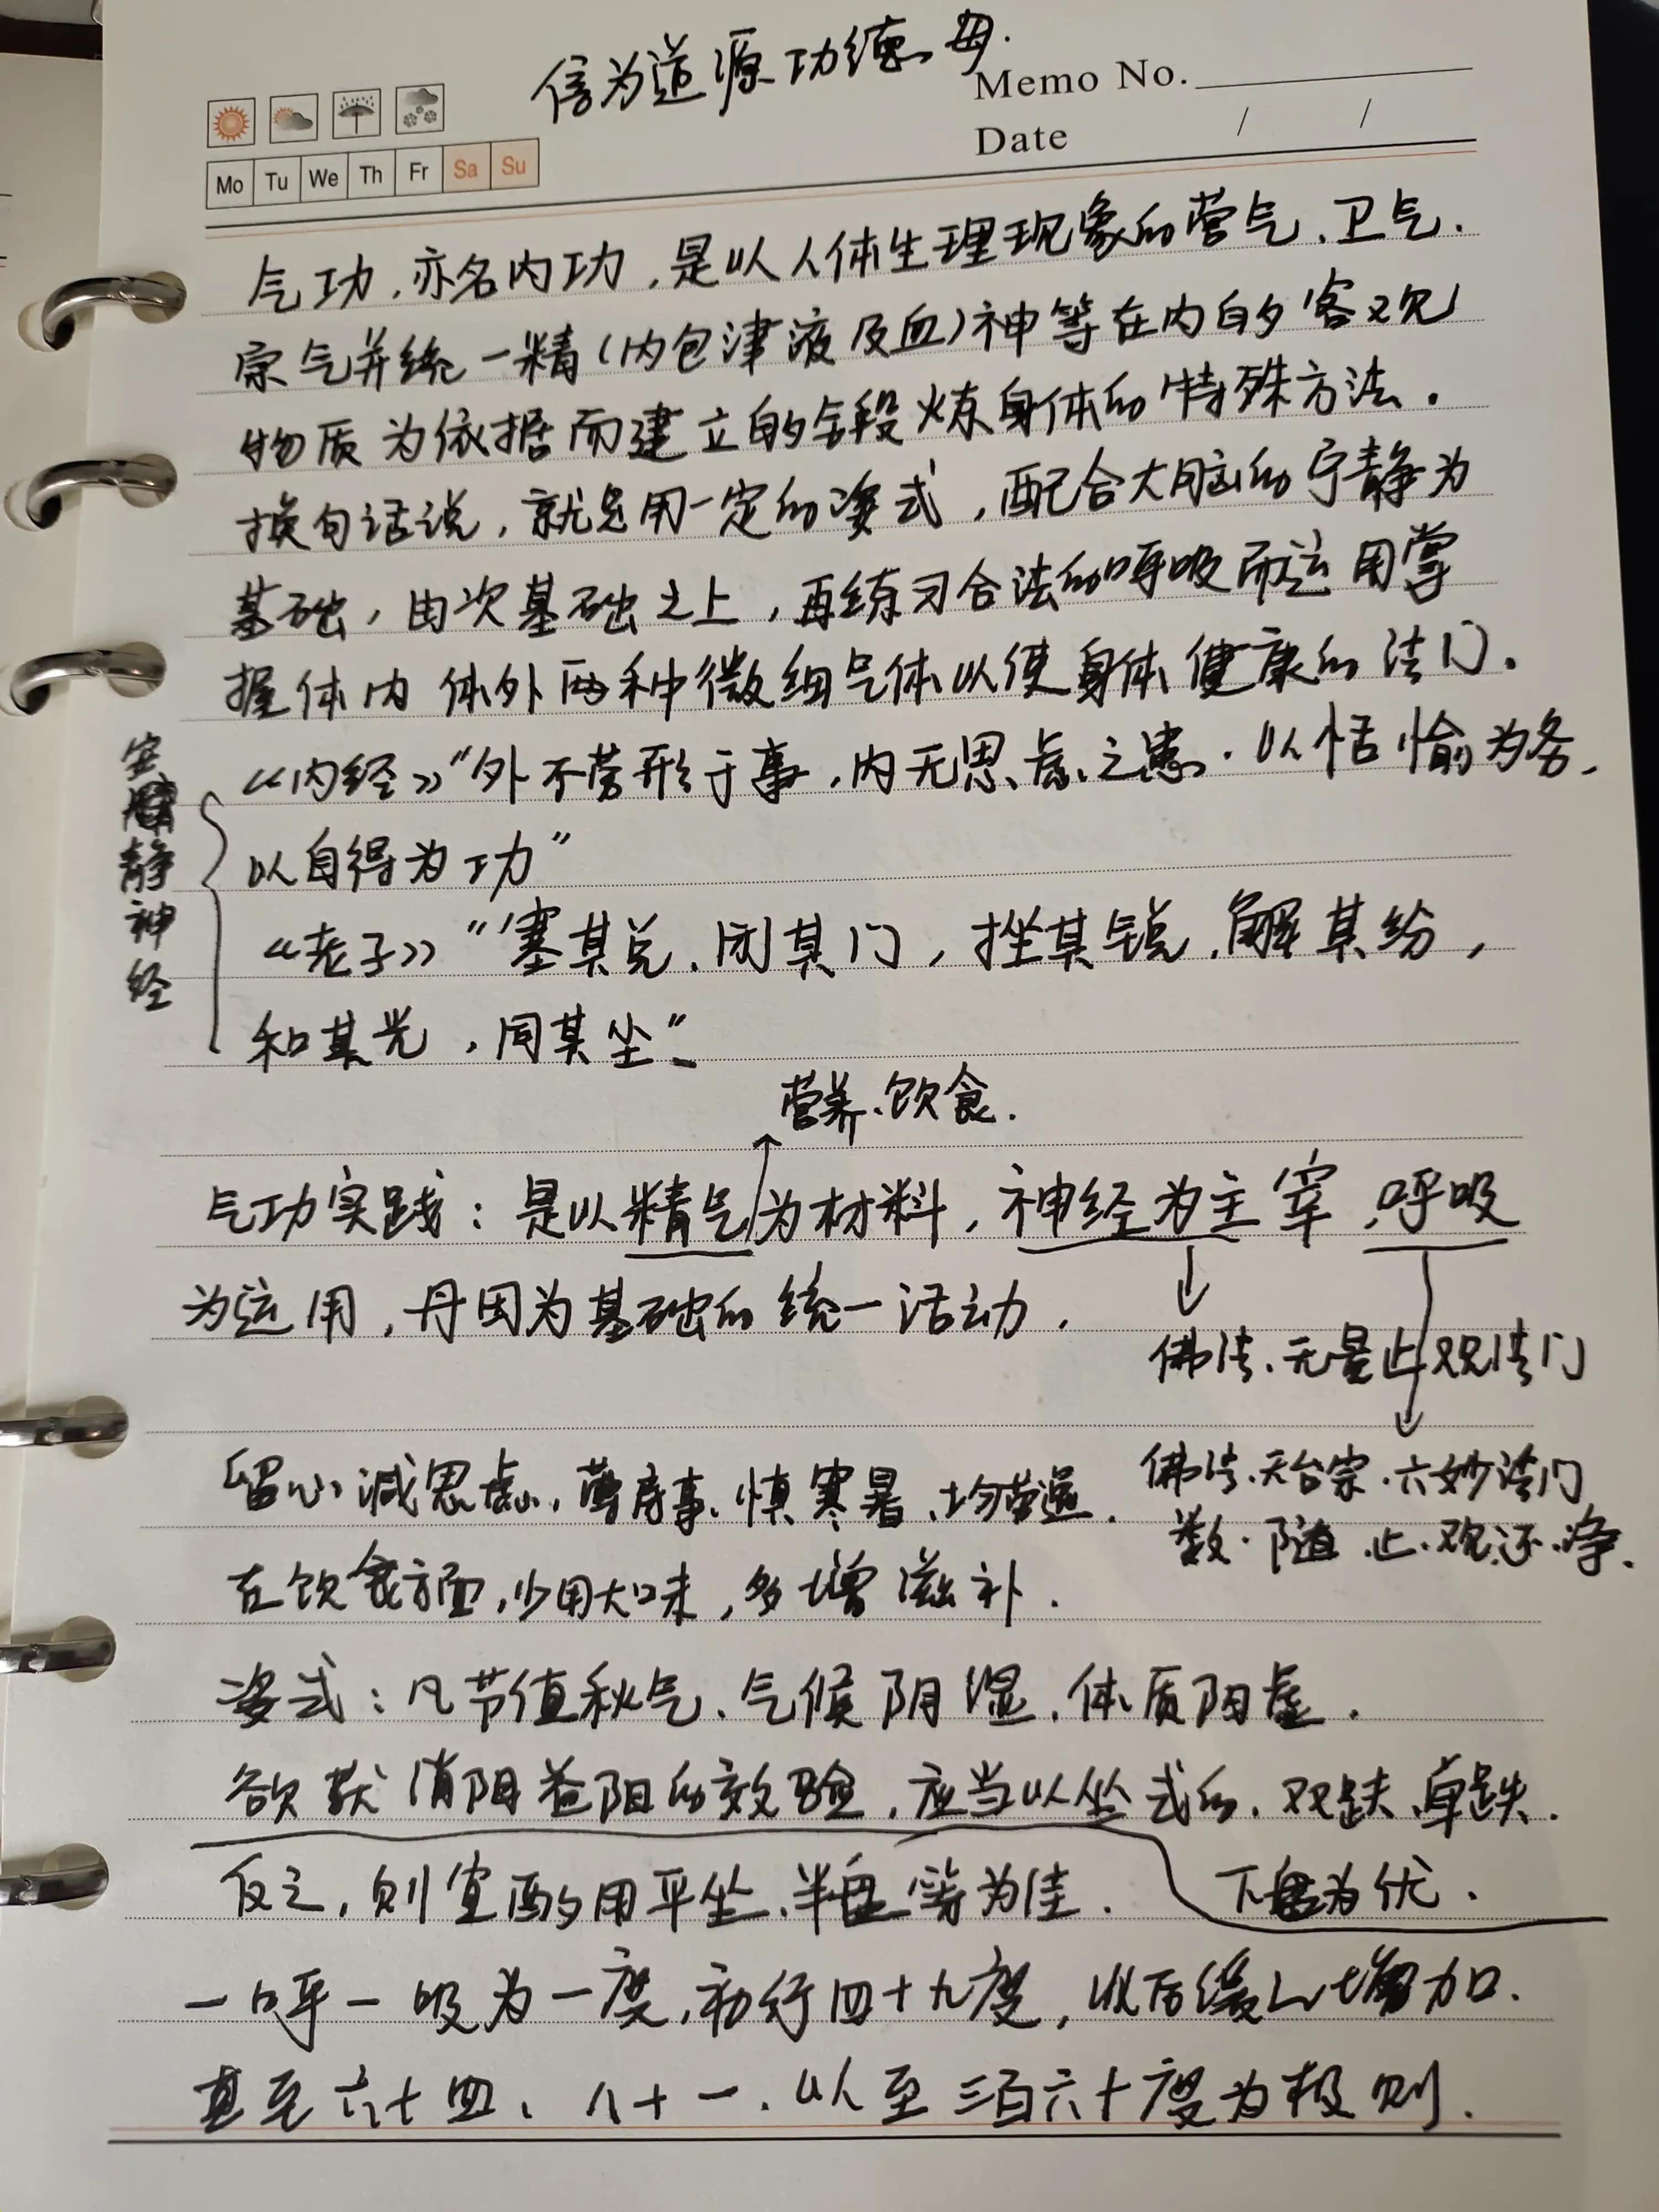 信为道源功德母.
Memo No.
Date / /
Mo Tu We Th Fr Sa Su
气功,亦名内功,是以人体生理现象的营气、卫气.
宗气并统一精(内包津液及血)神等在内的客观
物质为依据而建立的锻炼身体的特殊方法.
换句话说,就是用一定的姿式,配合大脑的宁静为
基础,由次基础之上,再练习合法的呼吸而运用掌
握体内体外两种微细气体以使身体健康的法门.
安静神经
《内经》"外不劳形于事,内无思虑之患.以恬愉为务,
以自得为功"
《老子》"塞其兑、闭其门,挫其锐,解其纷,
和其光,同其尘"
营养、饮食.
气功实践:是以精气为材料,神经为主宰,呼吸
为运用,丹田为基础的统一活动.
佛法、无量止观法门
留心减思虑,薄房事、慎寒暑、均劳逸.
佛法、天台宗.六妙法门
数.随.止.观.还.净.
在饮食方面,少用大味,多增滋补.
姿式:凡节值秋气、气候阴湿、体质阳虚.
欲获消阴益阳的效验,应当以坐式的、双趺、单趺.
下盘为优.
反之,则宜酌用平坐、半盘等为佳.
一呼一吸为一度,初行四十九度,以后缓缓增加.
甚至六十四、八十一、以至三百六十度为极则.